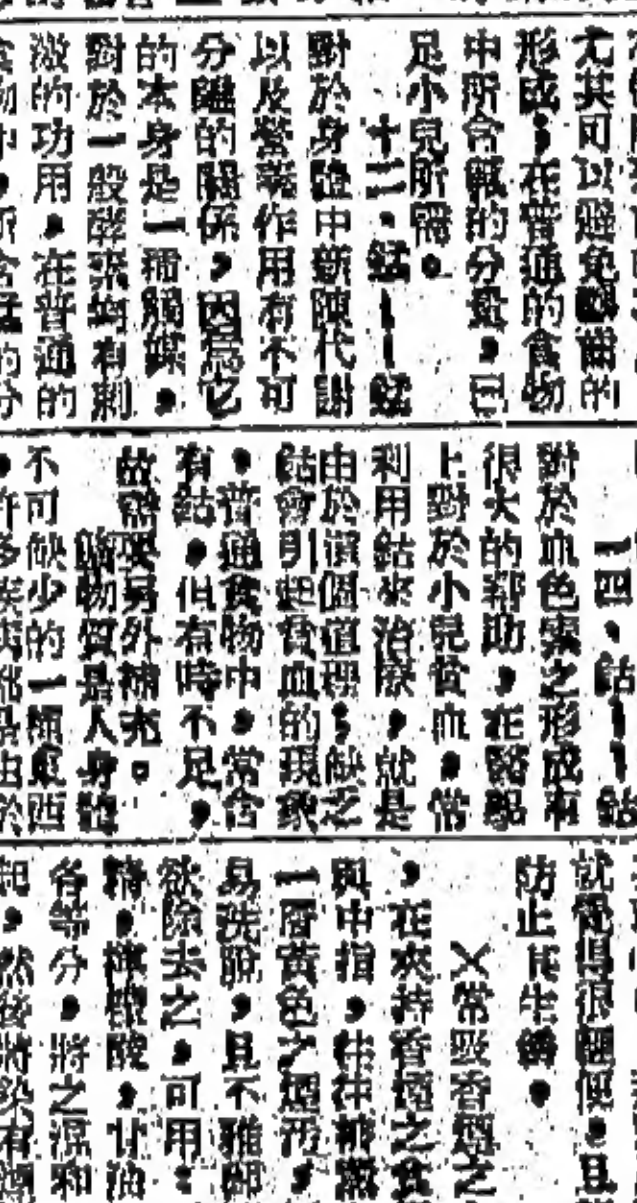 尤其可以避免齲齒的
形成；在普通的食物
中所含氟的分量，已
足小兒所需。
十三・錳——錳
對於身體中新陳代謝
以及營養作用有不可
分離的關係，因爲它
的本身是一種觸媒，
對於一般酵素均有刺
激的功用，在普通的
食物中，所含錳的分
一四・鈷——鈷
對於血色素之形成有
很大的幫助，在醫臨
上對於小兒貧血，常
利用鈷來治療，就是
由於這個道理；缺之
鈷會引起貧血的現象
，普通食物中，常含
有鈷，但有時不足，
故需要另外補充。
礦物質是人身體
不可缺少的一種東西
，許多疾病都是由於
就覺得很輕便，且
防止其生銹。
╳常吸香煙之
，在夾持香煙之食
與中指，往往被燻
一層黃色之煙污，
易洗脫，且不雅郎
欲除去之，可用：
精，檸檬酸，甘油
各等分，將之混和
起，然後將染有煙